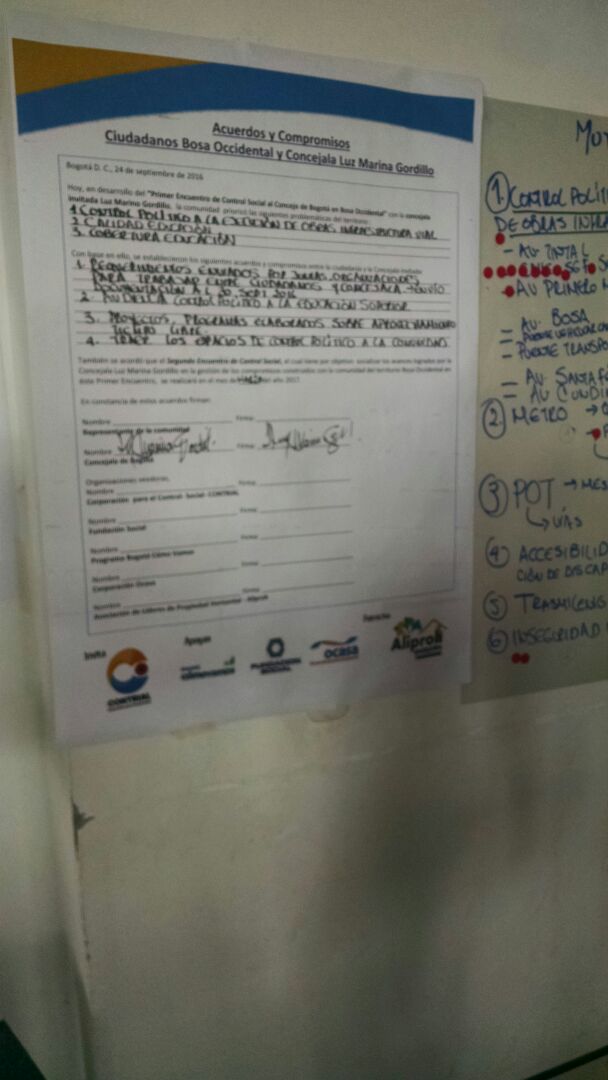 Acuerdos y Compromisos
Ciudadanos Bosa Occidental y Concejala Luz Marina Gordillo
Bogotá D. C., 24 de septiembre de 2016
Hoy, en desarrollo del "Primer Encuentro de Control Social al Concejo de Bogotá en Bosa Occidental" con la concejala
invitada Luz Marino Gordillo, la comunidad priorizó las siguientes problemáticas del territorio:
1. CONTROL POLÍTICO A LA DE OBRAS INFRAESTRUCTURA VIAL
2. CALIDAD EDUCACIÓN
3. COBERTURA EDUCACIÓN
Con base en ello, se establecieron los siguientes acuerdos y compromisos entre la ciudadanía y la Concejala invitada
1. REQUERIMIENTOS ENVIADOS POR ORGANIZACIONES
PARA TRABAJAR ENTRE CIUDADANOS Y CONCEJALA ENVÍO
DOCUMENTACIÓN AL 30 SEPT 2016
2. CONTROL POLÍTICO A LA EDUCACIÓN SUPERIOR
3. PROYECTOS, PROGRAMAS ELABORADOS SOBRE APROVECHAMIENTO
TIEMPO LIBRE
4. TRAER LOS ESPACIOS DE CONTROL POLÍTICO A LA COMUNIDAD
También se acordó que el Segundo Encuentro de Control Social, el cual tiene por objetivo: socializar los avances logrados por la
Concejala Luz Marina Gordillo en la gestión de los compromisos construidos con la comunidad del territorio Bosa Occidental en
éste Primer Encuentro, se realizará en el mes de del año 2017.
En constancia de estos acuerdos firman:
Nombre Firma:
Representante de la comunidad
Nombre Firma:
Concejala de Bogotá
Organizaciones veedoras:
Nombre Firma:
Corporación para el Control Social - CONTRIAL
Nombre Firma:
Fundación Social
Nombre Firma:
Programa Bogotá Cómo Vamos
Nombre Firma:
Corporación Ocasa
Nombre Firma:
Asociación de Líderes de Propiedad Horizontal - Aliproh
Invita
CONTRIAL
Apoyan
cómovamos
FUNDACIÓN
SOCIAL
ocasa
Aliproh
① CONTROL POLÍTI
DE OBRAS INFRA
- AV TINTAL
- AV PRIMERO M
= AV. BOSA
= PUENTE TRANSPO
= AV. SANTA F
= AV CUNDI
② METRO →
③ POT → MES
↳ VÍAS
④ ACCESIBILID
CIÓN DE DISCAP
⑤ TRASMILENI
⑥ INSEGURIDAD